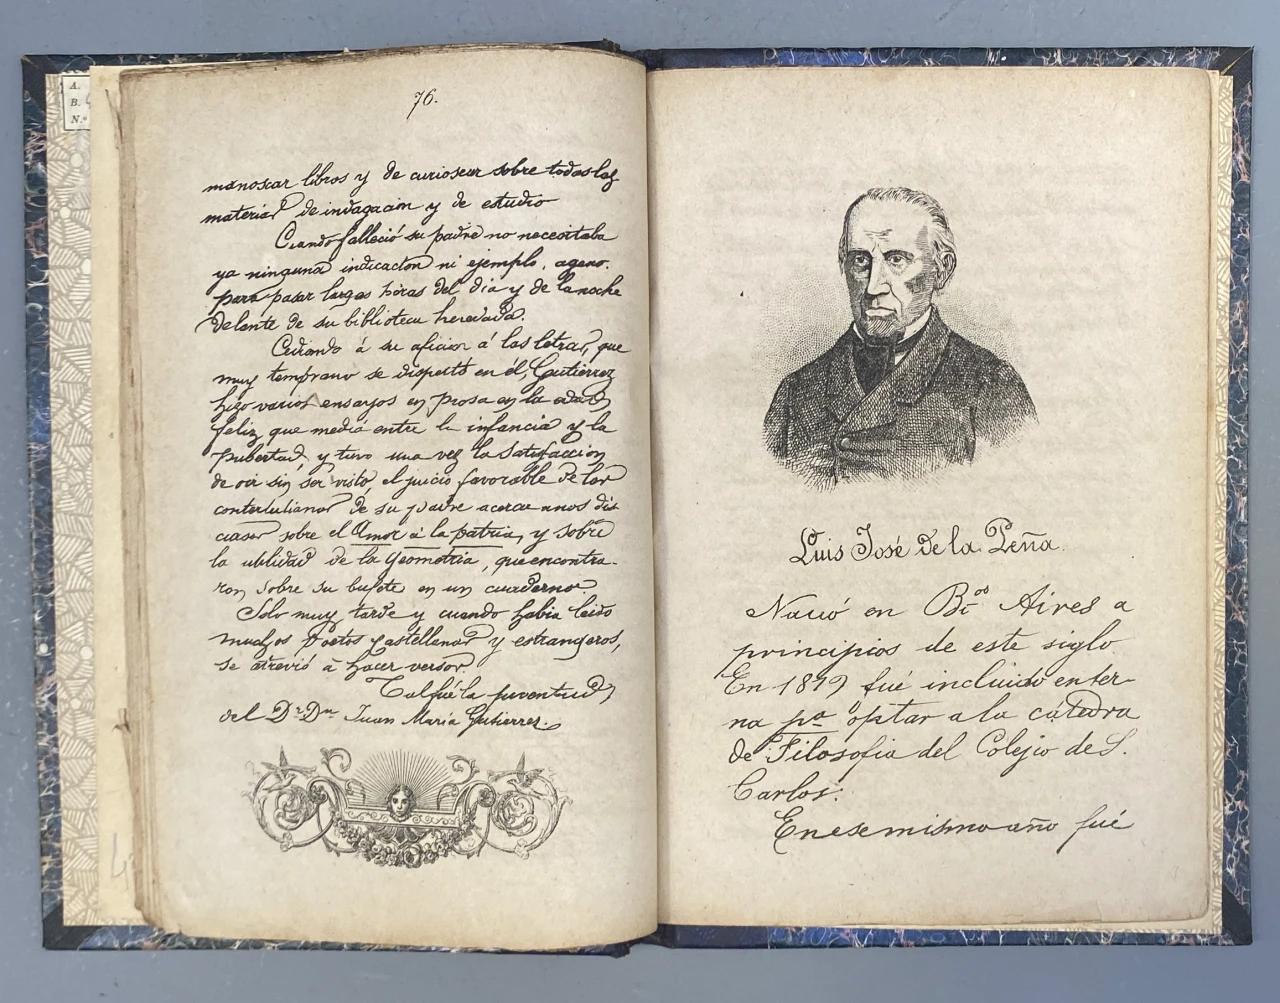 A.
B.
N.º
76.
manosear libros y de curiosear sobre todas las
materias de indagacion y de estudio
Cuando falleció su padre no necesitaba
ya ninguna indicacion ni ejemplo, ageno.
para pasar largas horas del dia y de la noche
delante de su biblioteca heredada.
Cediendo á su aficion á las letras, que
muy temprano se dispertó en él, Gutierrez
hizo varios ensayos en prosa en la edad
feliz que media entre la infancia y la
pubertad, y tuvo una vez la satisfaccion
de oir sin ser visto, el juicio favorable de los
contertulianos de su padre acerca unos dis-
cursos sobre el Amor á la patria, y sobre
la utilidad de la Geometria, que encontra-
ron sobre su bufete en un cuaderno.
Solo muy tarde y cuando habia leido
muchos poetas castellanos y estrangeros,
se atrevió á hacer versos
Tal fué la juventud
del Dr. Dn. Juan María Gutierrez.
Luis José de la Peña.
Nació en Bs Aires a
principios de este siglo
En 1819 fué incluido en ter-
na pa optar a la cátedra
de Filosofia del Colejio de S.
Carlos.
En ese mismo año fué